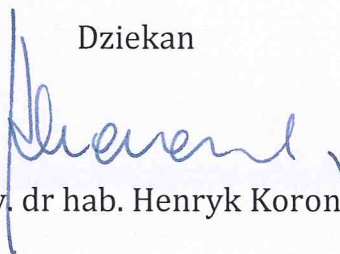 Dziekan
. dr hab. Henryk Koron